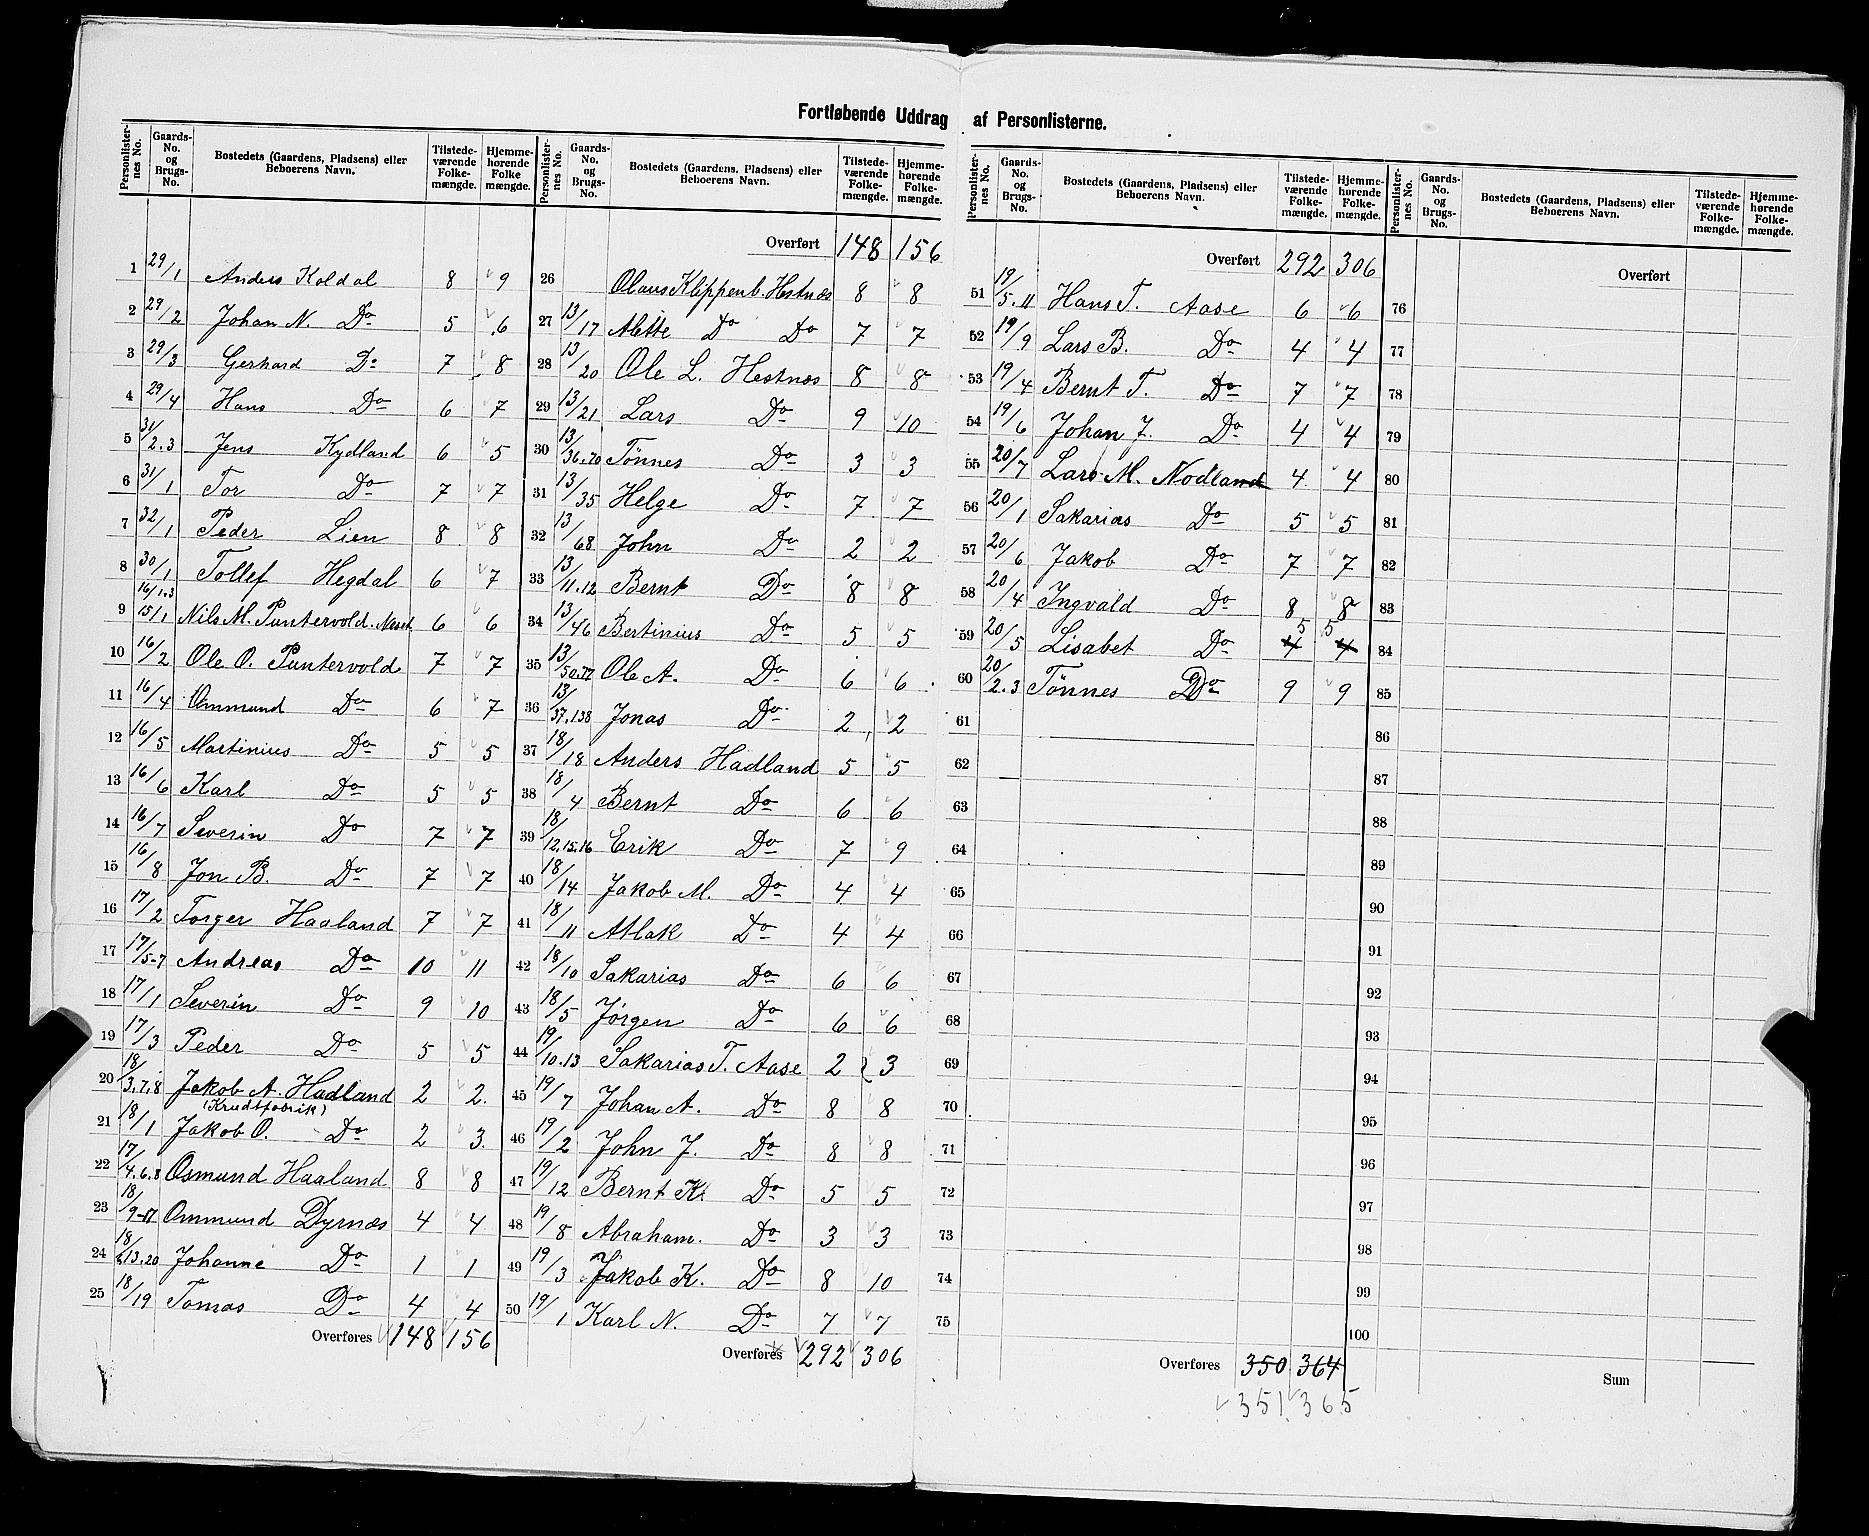 Fortløbende Uddrag af Personlisterne.
Personlister-nes No. | Gaards-No. og Brugs-No. | Bostedets (Gaardens, Pladsens) eller Beboerens Navn. | Tilstede-værende Folke-mængde. | Hjemme-hørende Folke mængde.
1 29/1 Anders Koldal 8 9
2 29/2 Johan N. Do 5 6
3 29/3 Gerhard Do 7 8
4 29/4 Hans Do 6 7
5 31/2.3 Jens Kydland 6 5
6 31/1 Tor Do 7 7
7 32/1 Peder Lien 8 8
8 30/1 Tollef Hegdal 6 7
9 16/1.3 15/1 Nils M. Puntervold. Neset 6 6
10 16/2 Ole O. Puntervold 7 7
11 16/4 Ommund Do 6 7
12 16/5 Martinius Do 5 5
13 16/6 Karl Do 5 5
14 16/7 Severin Do 7 7
15 16/8 Jon B. Do 7 7
16 17/2 Torger Haaland 7 7
17 17/5-7 Andreas Do 10 11
18 17/1 Severin Do 9 10
19 17/3 Peder Do 5 5
20 18/3.7.8 Jakob A. Hadland 2 2.
(Krudtfabrik)
21 18/1 Jakob O. Do 2 3.
22 17/4.6.8 Osmund Haaland 8 8
23 18/9-17 Ommund Dyrnæs 4 4
24 18/2.13.20 Johanne Do 1 1
25 18/19 Tomas Do 4 4
Overføres 148 156
Personlister-nes No. | Gaards-No. og Brugs-No. | Bostedets (Gaardens, Pladsens) eller Beboerens Navn. | Tilstede-værende Folke-mængde. | Hjemme-hørende Folke-mængde.
Overført 148 156
26 Olaus Klippenb. Hestnæs 8 8
27 13/17 Mette Do Do 7 7
28 13/20 Ole L. Hestnæs 8 8
29 13/21 Lars Do 9 10
30 13/36.70 Tønnes Do 3 3
31 13/35 Helge Do 7 7
32 13/68 John Do 2 2
33 13/11.12 Bernt Do 8 8
34 13/46 Bertinius Do 5 5
35 13/50.77 Ole A. Do 6 6
36 13/37.138 Jonas Do 2 2
37 18/18 Anders Hadland 5 5
38 18/4 Bernt Do 6 6
39 18/12.15.16 Erik Do 7 9
40 18/14 Jakob M. Do 4 4
41 18/11 Atlak Do 4 4
42 18/10 Sakarias Do 6 6
43 18/5 Jørgen Do 6 6
44 19/10.13 Sakarias T. Aase 2 3
45 19/7 Johan A. Do 8 8
46 19/2 John J. Do 8 8
47 19/12 Bernt K. Do 5 5
48 19/8 Abraham. Do 3 3
49 19/3 Jakob K. Do 8 10
50 19/1 Karl N. Do 7 7
Overføres 292 306
Personlister-nes No. | Gaards-No. og Brugs-No. | Bostedets (Gaardens, Pladsens) eller Beboerens Navn. | Tilstede-værende Folke-mængde. | Hjemme-hørende Folke-mængde.
Overført 292 306
51 19/5.11 Hans T. Aase 6 6
52 19/9 Lars B. Do 4 4
53 19/4 Bernt T. Do 7 7
54 19/6 Johan J. Do 4 4
55 20/7 Lars M. Nodland 4 4
56 20/1 Sakarias Do 5 5
57 20/6 Jakob Do 7 7
58 20/4 Ingvald Do 8 8
59 20/5 Lisabet Do 4 5 5 4
60 20/2.3 Tønnes Do 9 9
61
62
63
64
65
66
67
68
69
70
71
72
73
74
75
Overføres 350 364
351 365
Personlister-nes No. | Gaards-No. og Brugs-No. | Bostedets (Gaardens, Pladsens) eller Beboerens Navn. | Tilstede-værende Folke-mængde. | Hjemme-hørende Folke-mængde.
Overført
76
77
78
79
80
81
82
83
84
85
86
87
88
89
90
91
92
93
94
95
96
97
98
99
100
Sum